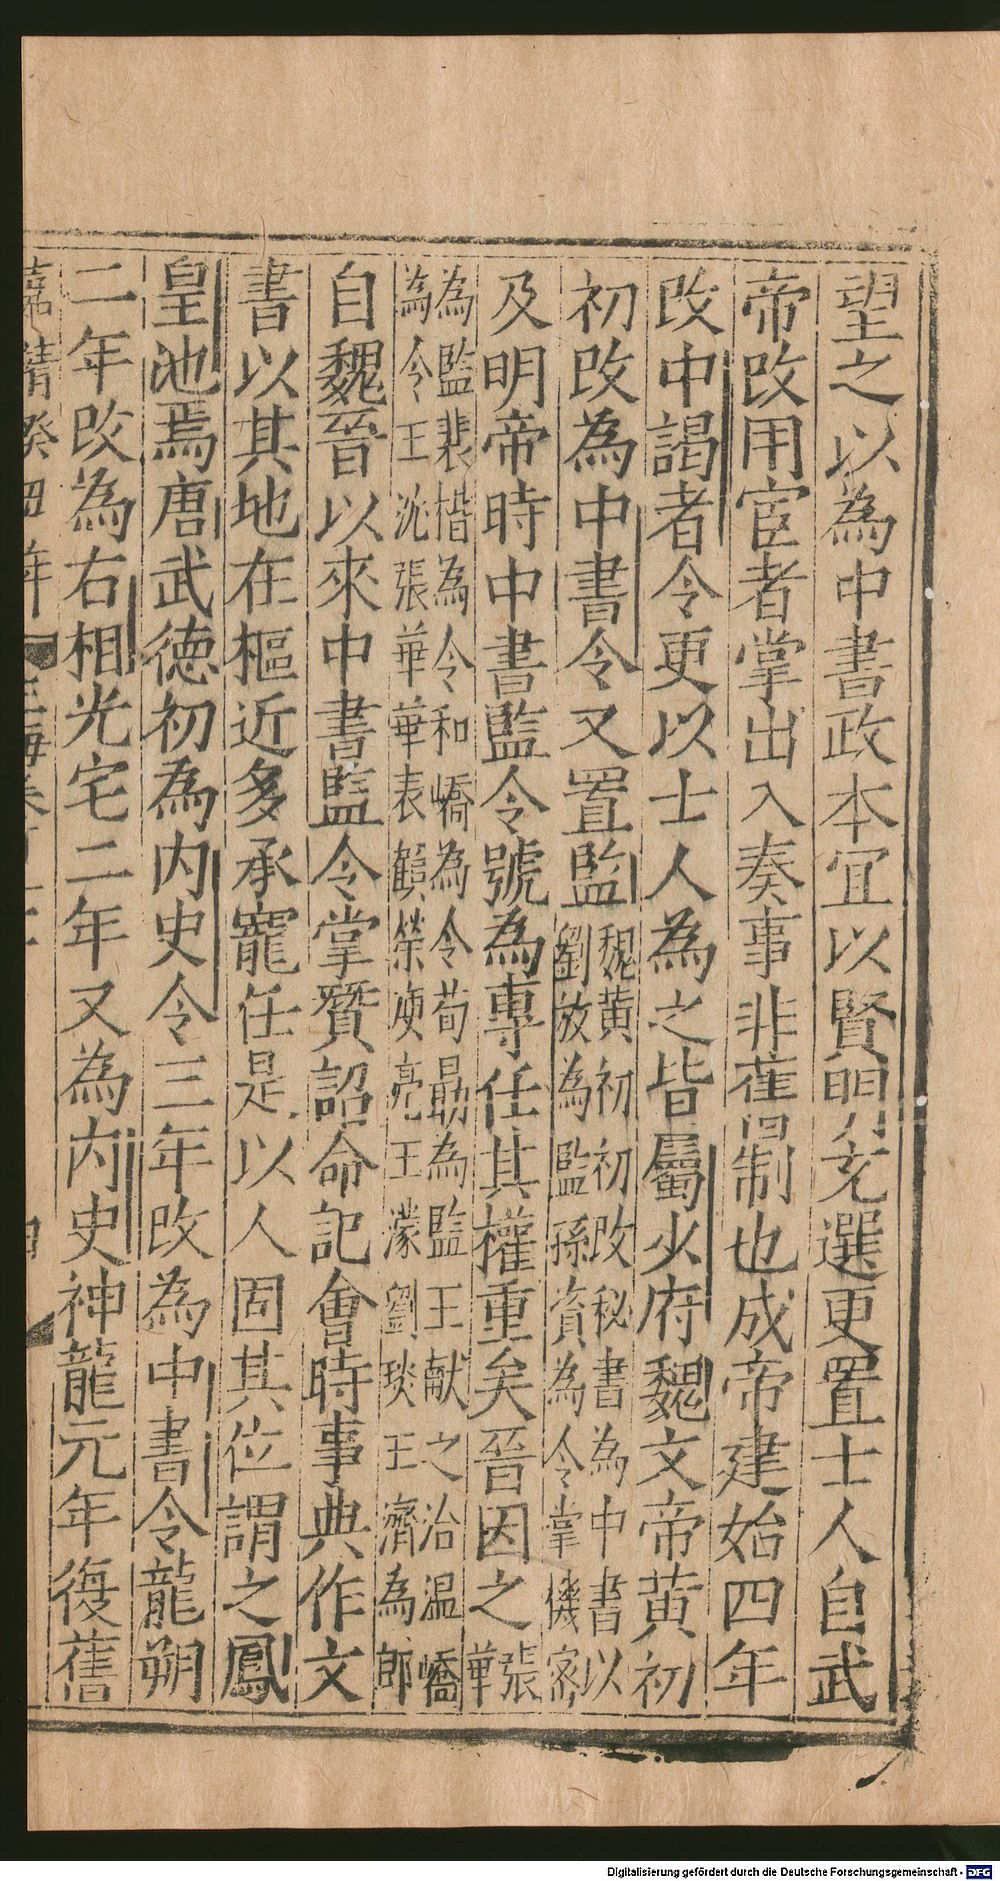 望之以為中書政本宜以賢明充選更置士人自武
帝改用宦者掌出入奏事非舊制也成帝建始四年
改中謁者令更以士人為之皆屬少府魏文帝黄初
初改為中書令又置監魏黄初初改秘書為中書以劉放為監孫資為令掌機密
及明帝時中書監令號為專任其權重矣晉因之張華
為監裴楷為令和嶠為令荀勗為監王献之治温嶠為令王沈張華華表顧榮庾亮王濛劉琰王濟為郎
自魏晉以來中書監令掌贊詔命記會時事典作文
書以其地在樞近多承寵任是以人固其位謂之鳳
皇池焉唐武徳初為内史令三年改為中書令龍朔
二年改為右相光宅二年又為内史神龍元年復舊
嘉靖癸丑年
Digitalisierung gefördert durch die Deutsche Forschungsgemeinschaft - DFG